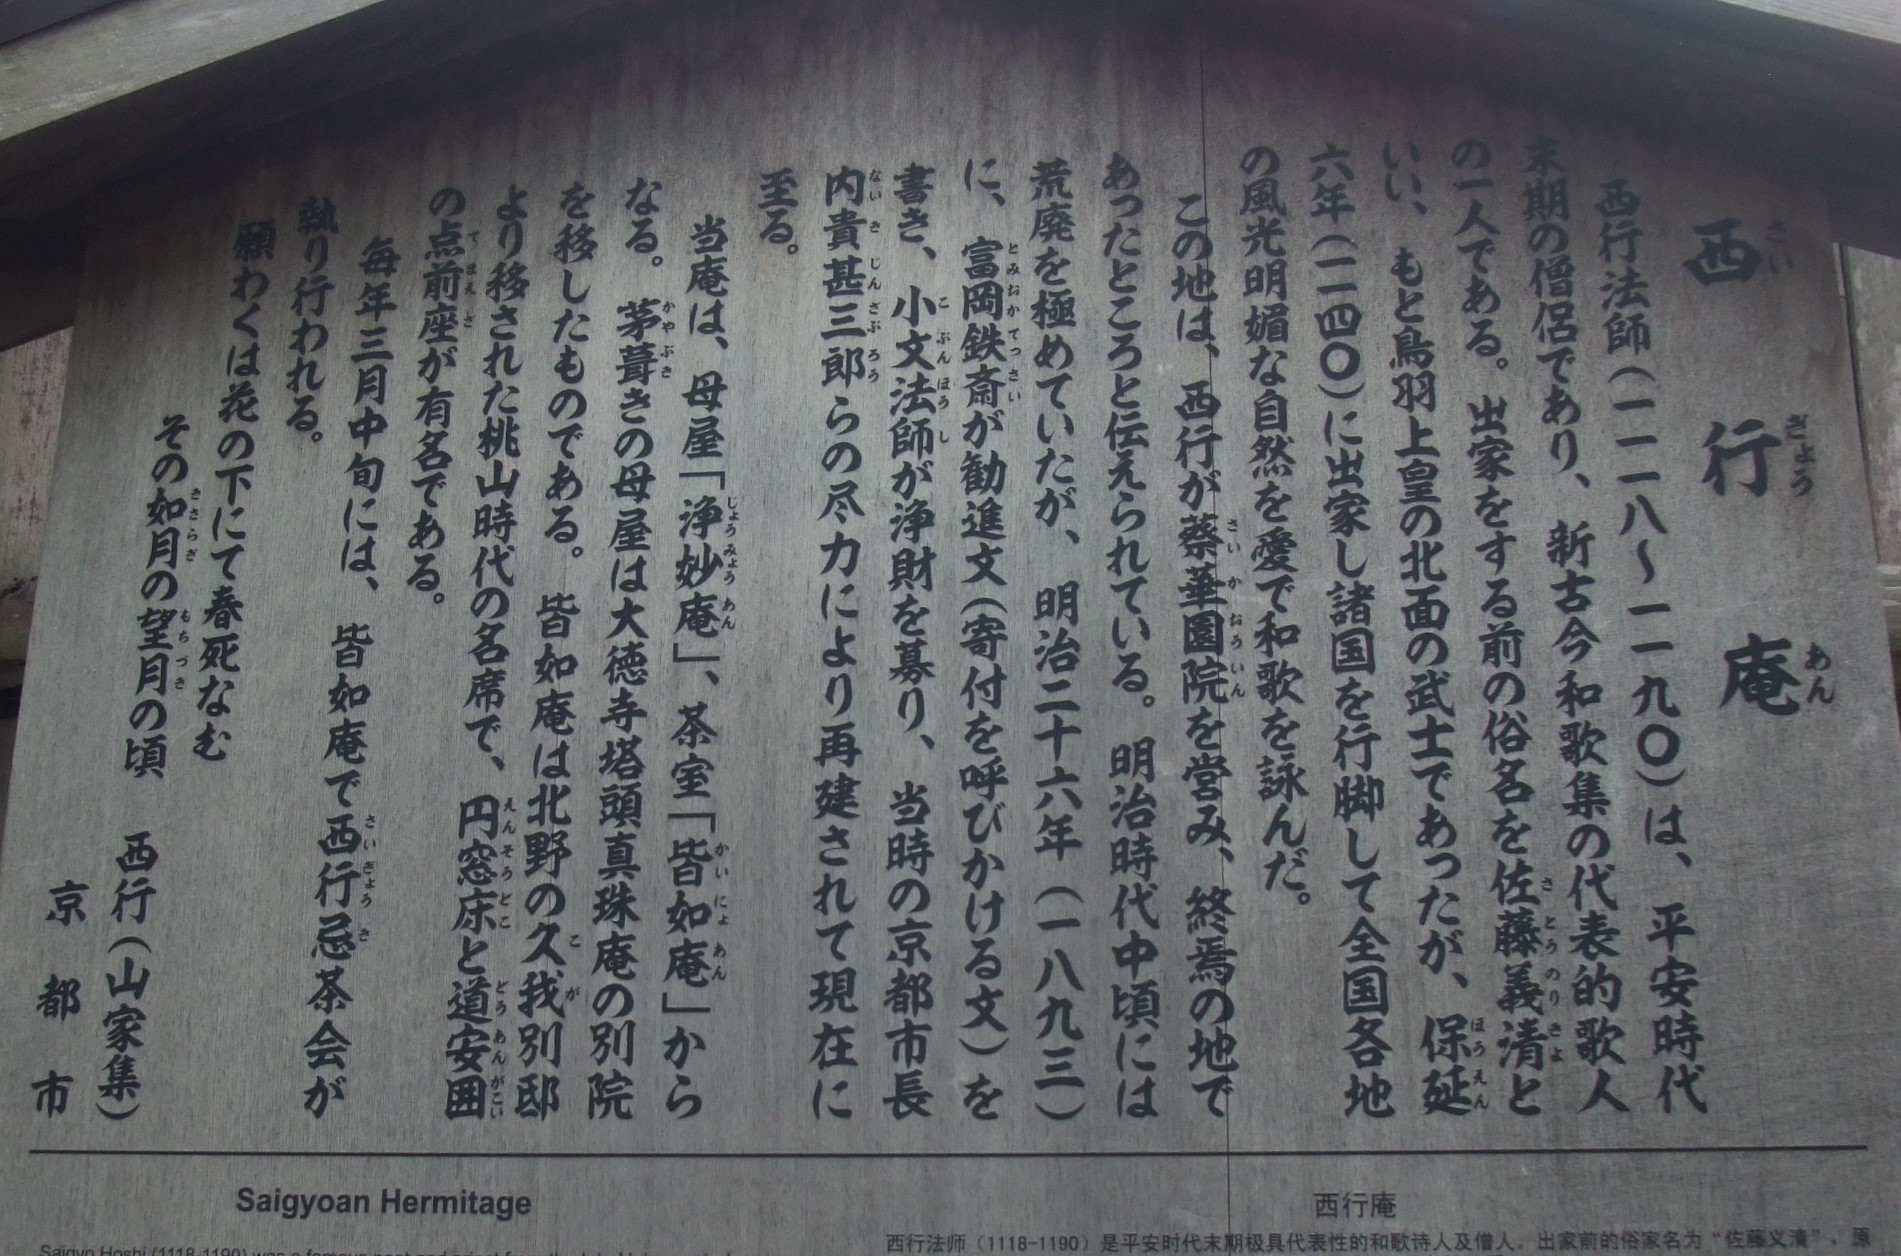 西行庵
さいぎょうあん
西行法師(一一一八〜一一九〇)は、平安時代
末期の僧侶であり、新古今和歌集の代表的歌人
の一人である。出家をする前の俗名を佐藤義清と
さとうのりきよ
いい、もと鳥羽上皇の北面の武士であったが、保延
ほうえん
六年(一一四〇)に出家し諸国を行脚して全国各地
の風光明媚な自然を愛で和歌を詠んだ。
この地は、西行が蔡華園院を営み、終焉の地で
さいかおういん
あったところと伝えられている。明治時代中頃には
荒廃を極めていたが、明治二十六年(一八九三)
に、富岡鉄斎が勧進文(寄付を呼びかける文)を
とみおかてっさい
書き、小文法師が浄財を募り、当時の京都市長
こぶんほうし
内貴甚三郎らの尽力により再建されて現在に
ないきじんざぶろう
至る。
当庵は、母屋「浄妙庵」、茶室「皆如庵」から
じょうみょうあん かいにょあん
なる。茅葺きの母屋は大徳寺塔頭真珠庵の別院
かやぶき
を移したものである。皆如庵は北野の久我別邸
こが
より移された桃山時代の名席で、円窓床と道安囲
えんそうどこ どうあんがこい
の点前座が有名である。
てまえざ
毎年三月中旬には、皆如庵で西行忌茶会が
さいぎょうき
執り行われる。
願わくは花の下にて春死なむ
その如月の望月の頃 西行(山家集)
きさらぎ もちづき
京都市
Saigyoan Hermitage
西行庵
西行法师(1118-1190)是平安时代末期极具代表性的和歌诗人及僧人。出家前的俗家名为“佐藤义清”，原